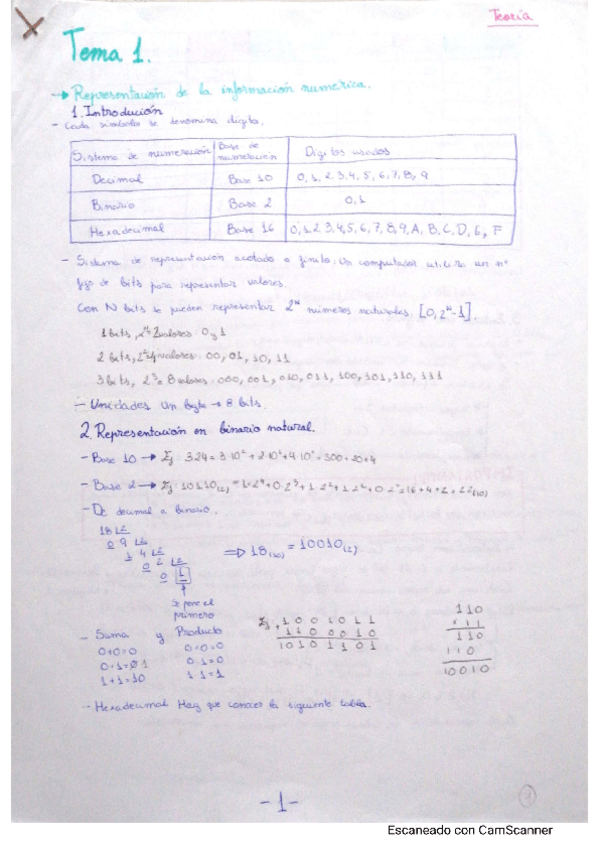 Teoría
Tema 1.
→ Representación de la información numérica.
1. Introdución
- Cada símbolo se denomina dígito.
Sistema de numeración | Base de numeración | Dígitos usados
Decimal | Base 10 | 0, 1, 2, 3, 4, 5, 6, 7, 8, 9
Binario | Base 2 | 0, 1
Hexadecimal | Base 16 | 0, 1, 2, 3, 4, 5, 6, 7, 8, 9, A, B, C, D, E, F
- Sistema de representación acotado o finito: Un computador utiliza un nº
fijo de bits para representar valores.
Con N bits se pueden representar 2ᴺ números naturales [0, 2ᴺ-1].
1 bits, 2¹= 2 valores: 0 y 1
2 bits, 2²=4 valores: 00, 01, 10, 11
3 bits, 2³= 8 valores: 000, 001, 010, 011, 100, 101, 110, 111
- Unidades: Un byte → 8 bits.
2. Representación en binario natural.
- Base 10 → Ej: 324 = 3·10² + 2·10¹ + 4·10⁰ = 300 + 20 + 4
- Base 2 → Ej: 10110(2) = 1·2⁴ + 0·2³ + 1·2² + 1·2¹ + 0·2⁰ = 16 + 4 + 2 = 22(10)
- De decimal a binario.
18 |2
0 9 |2
1 4 |2
0 2 |2
0 1
⇒ 18(10) = 10010(2)
Se pone el
primero
- Suma y Producto
0+0=0 0·0=0
0+1=1 0·1=0
1+1=10 1·1=1
Ej: 1001011
+ 1100010
10101101
110
x 11
110
110
10010
- Hexadecimal: Hay que conocer la siguiente tabla.
-1-
1
Escaneado con CamScanner